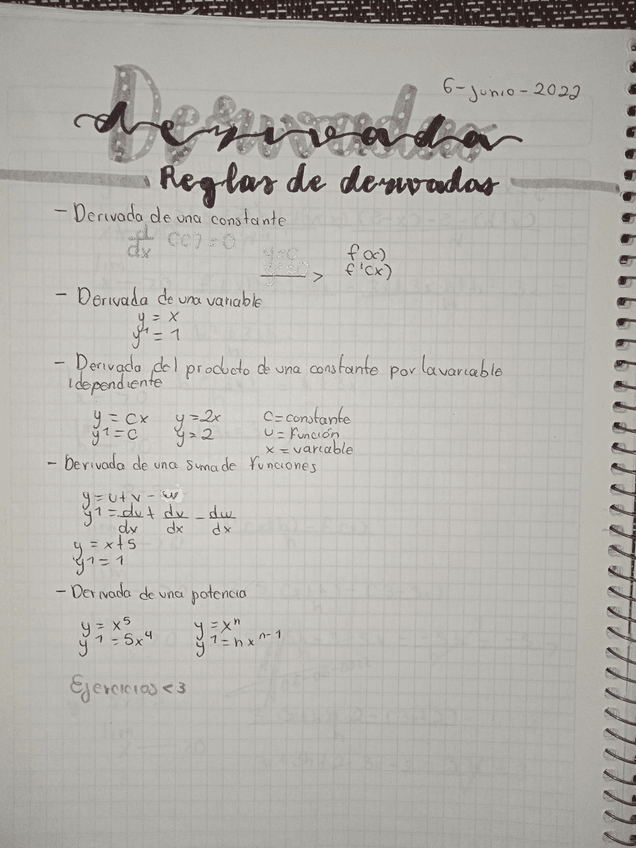 6-junio-2022
Derivadas
derivada
Reglas de derivadas
- Derivada de una constante
d/dx (c) = 0
y=c f(x)
> f'(x)
- Derivada de una variable
y = x
y1 = 1
- Derivada del producto de una constante por la variable
idependiente
y = cx y=2x C=constante
y1=c y=2 U=Función
x=variable
- Derivada de una suma de funciones
y=u+v-w
y1=du/dv + dv/dx - dw/dx
y = x+5
y1=1
- Derivada de una potencia
y = x⁵ y=xⁿ
y1=5x⁴ y1=nxⁿ⁻¹
Ejercicios <3